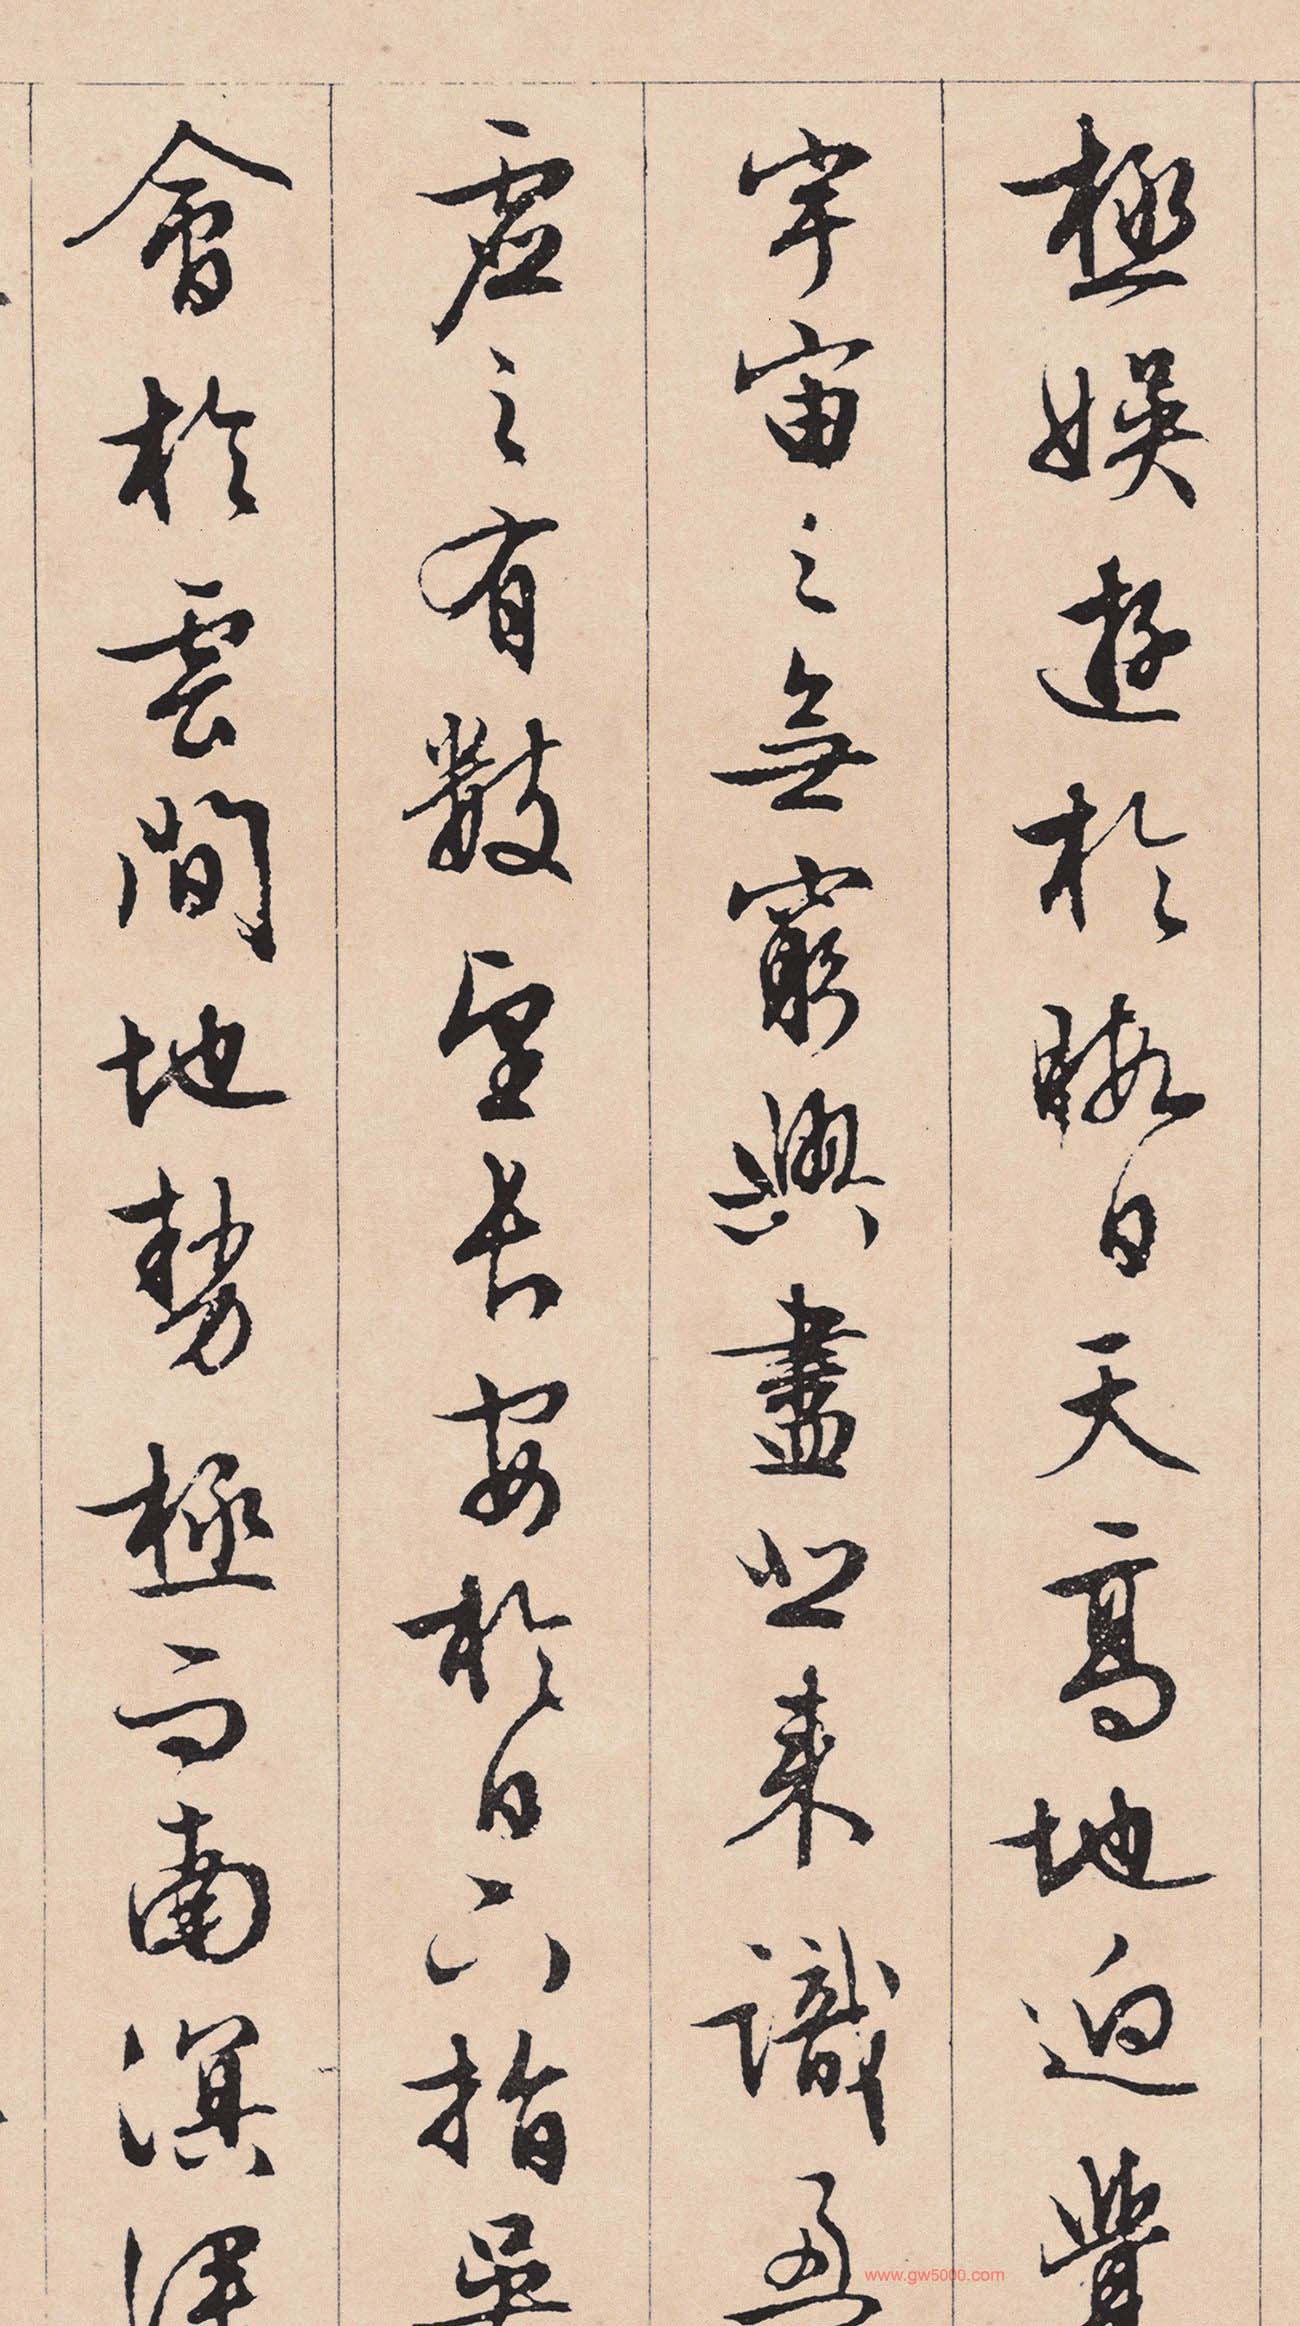 極娛遊於暇日天高地逈覺
宇宙之無窮興盡悲來識盈
虛之有數望長安於日下指吳
會於雲間地勢極而南溟深
www.gw5000.com